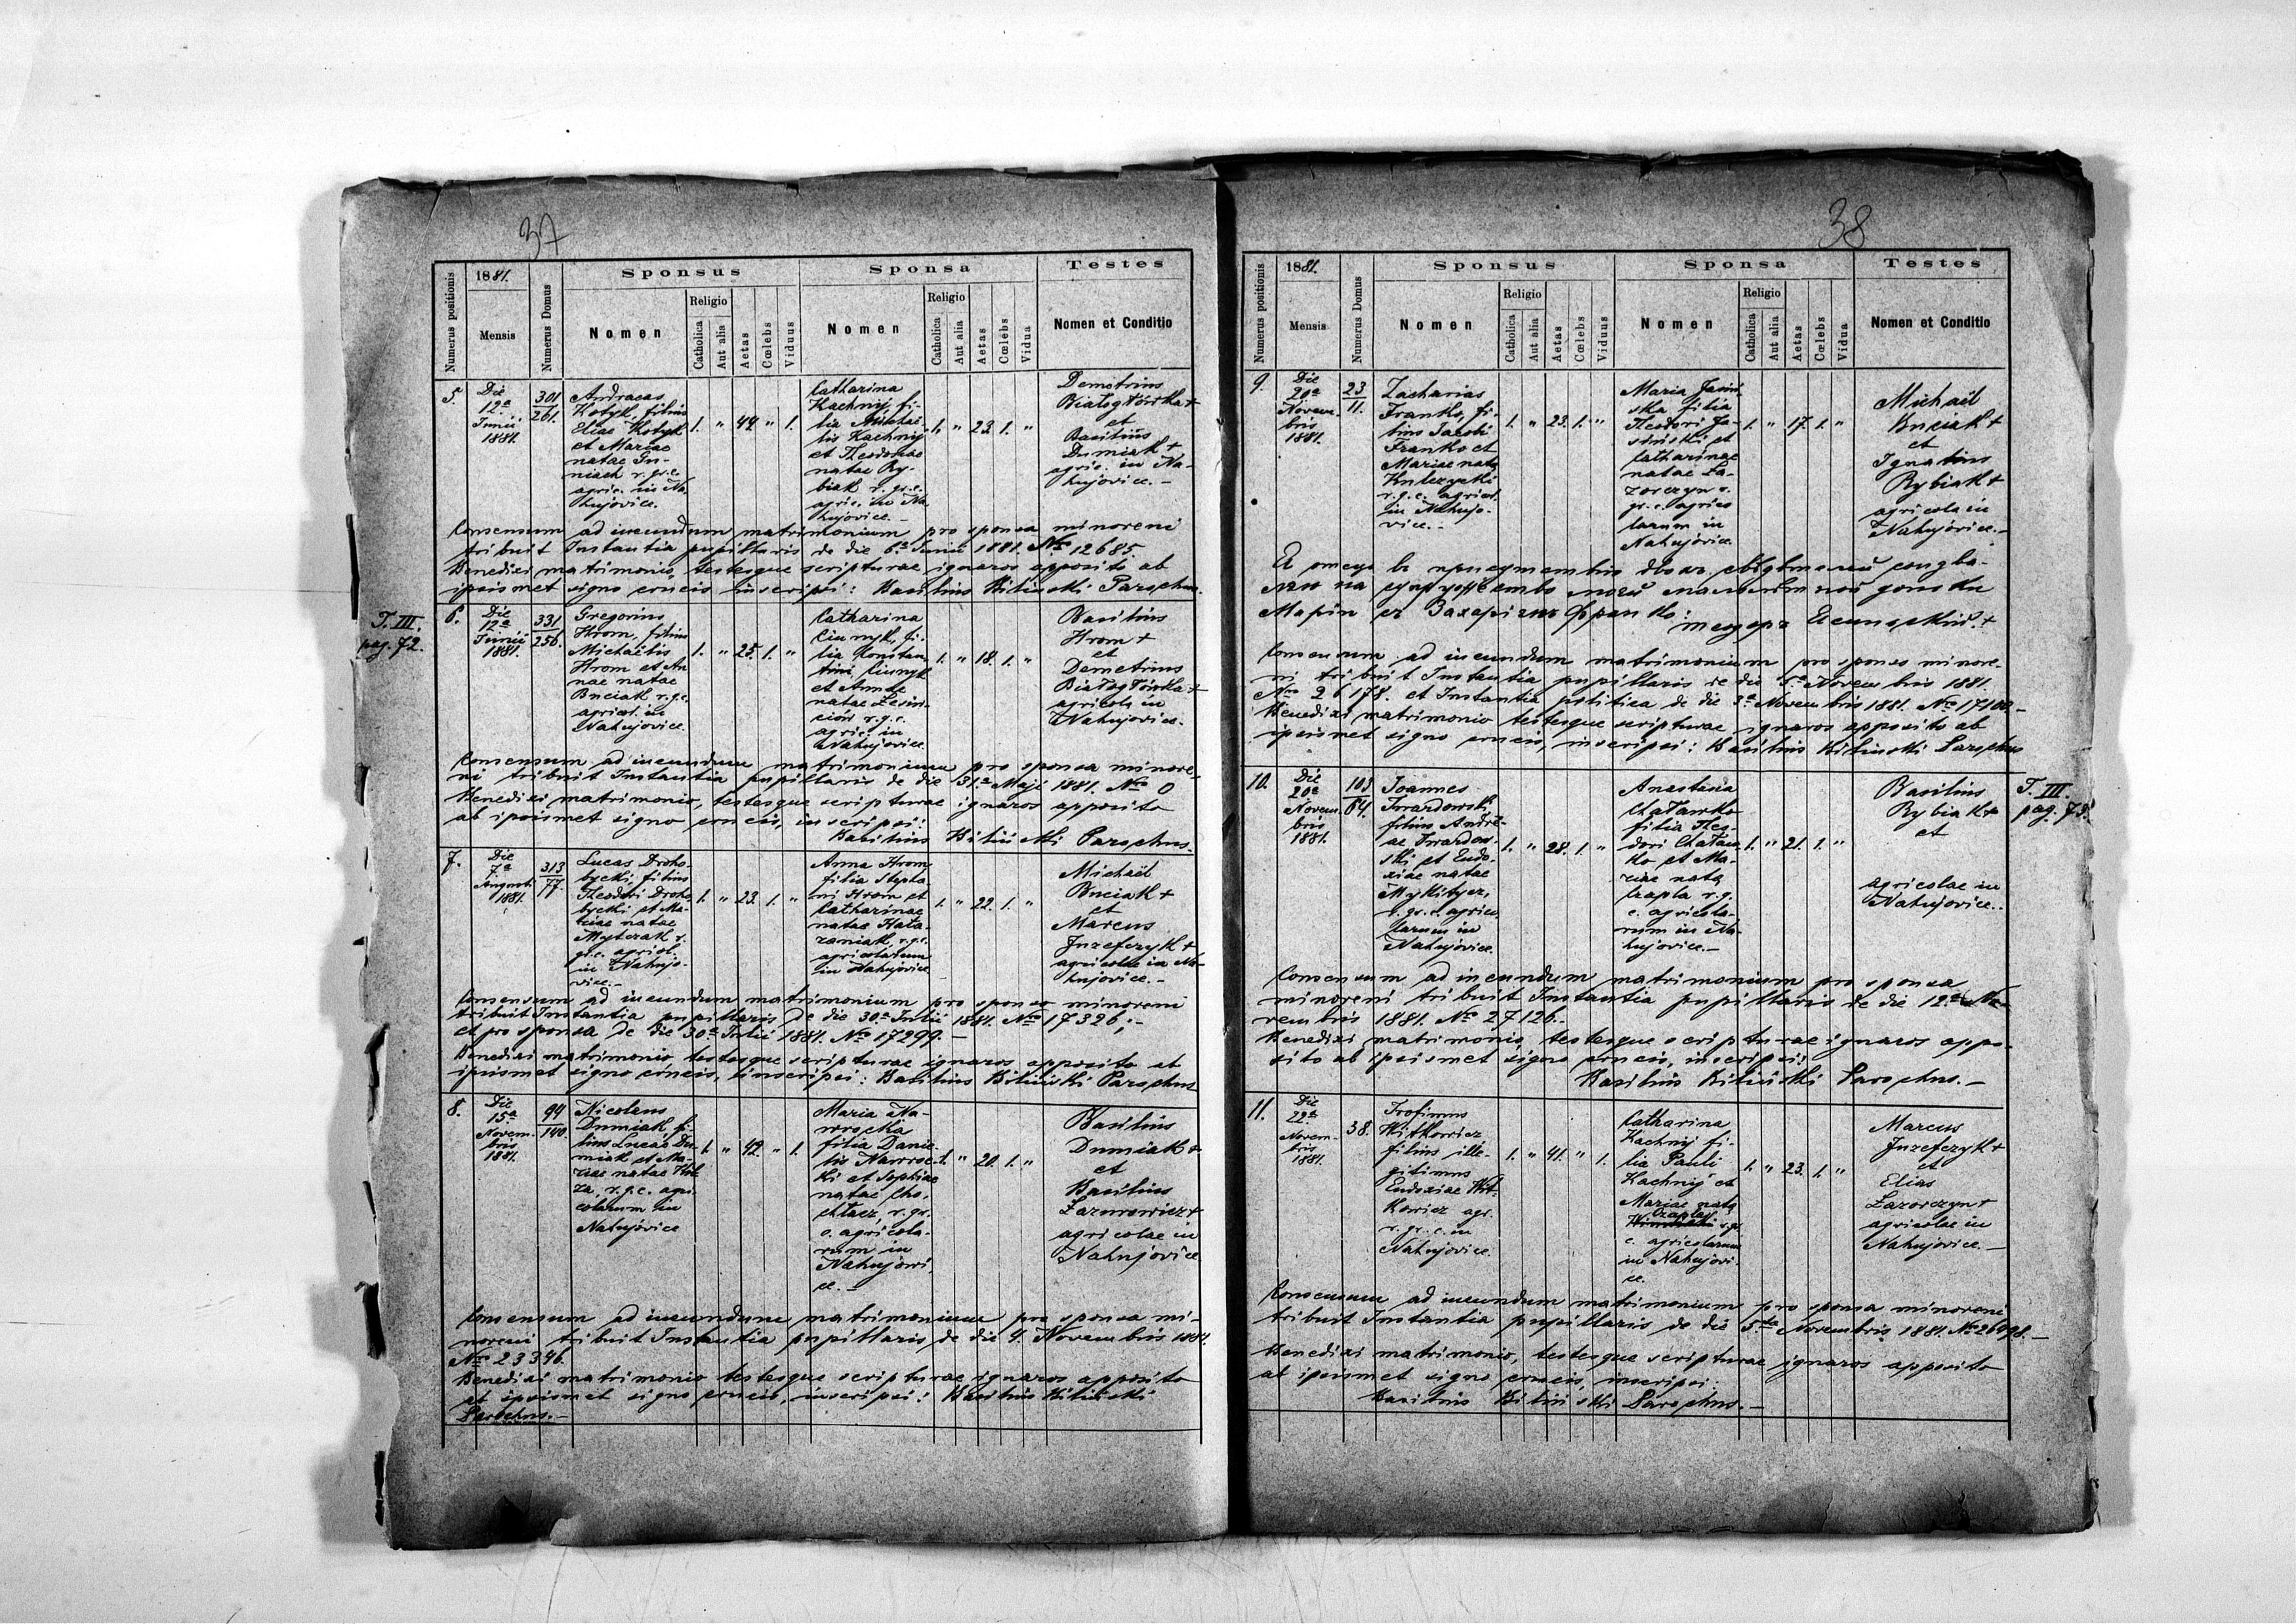 37
Numerus positionis
1881.
Mensis
Numerus Domus
Sponsus
Nomen
Religio
Catholica
Aut alia
Aetas
Cœlebs
Viduus
Sponsa
Nomen
Religio
Catholica
Aut alia
Aetas
Cœlebs
Vidua
Testes
Nomen et Conditio
5.
Die
12ª
Junii
1881.
301
261.
Andraeas
Kotyk, filius
Eliae Kotyk
et Mariae
natae
r. gr. c.
agric. in Na
hujovice.
1. " 44. " 1.
Catharina
Kachnij, fi-
lia Michaë-
lis Kachnij
et Theodosiae
natae Ry-
biak r. gr. c.
agric. in Na
hujovice.-
1. " 23. 1. "
Demetrius
Białogłówka +
et
Basilius
Dumiak +
agric. in Na-
hujovice.-
Consensum ad ineundum matrimonium pro sponsa minoreni
tribuit Instantia pupillaris de die 6ª Junii 1881. Nro 12685.
Benedixi matrimonio, testesque scripturae ignaros apposito ab
ipsismet signo crucis inscripsi: Basilius Biliński Parochus.
T. III.
pag. 72.
6.
Die
12ª
Junii
1881.
331
256.
Gregorius
Hrom, filius
Michaëlis
Hrom et An
nae natae
Bneiak r. g. c.
agricol. in
Nahujovice.
1. " 25. 1. "
Catharina
Ciunyk, fi-
lia Constan
tini Ciunyk
et Annae
natae
r. g. c.
agric. in
Nahujovice
1. " 18. 1. "
Basilius
Hrom +
et
Demetrius
Białogłówka +
agricolae in
Nahujovice.
Consensum ad ineundum matrimonium pro sponsa minore-
ni tribuit Instantia pupillaris de die 31ª Maji 1881. Nro 0
Benedixi matrimonio, testesque scripturae ignaros apposito
ab ipsismet signo crucis, inscripsi:
Basilius Biliński Parochus.
7.
Die
7ª
Augusti
1881.
313
77.
Lucas Droho-
bycki, filius
Theodori Droho
bycki et Ma-
riae natae
Mylczak r.
gr. c. agricol.
in Nahujo-
vice.-
1. " 23. 1. "
Anna Hrom
filia Stepha
ni Hrom et
Catharinae
natae Hata-
zaniak, r. g. c.
agricolarum
in Nahujovice
1. " 22. 1. "
Michaël
Bneiak +
et
Marcus
Juzefczyk +
agricolae in Na-
hujovice.-
Consensum ad ineundum matrimonium pro sponso minoreni
tribuit Instantia pupillaris de die 30ª Julii 1881. Nro 17326;-
et pro sponsa de die 30ª Julii 1881. No 17299.-
Benedixi matrimonio testesque scripturae ignaros apposito ab
ipsismet signo crucis, inscripsi: Basilius Biliński Parochus
8.
Die
15ª
Novem-
bris
1881.
94
140.
Nicolaus
Dumiak, fi-
lius Lucae Du-
miak et Ma-
riae natae
r. g. c. agri-
colarum in
Nahujovice
1. " 42. " 1.
Maria Na-
wrocka
filia Danie-
lis Nawroc-
ki et Sophiae
natae
r. gr.
c. agricola-
rum in
Nahujowi-
ce.-
1. " 20. 1. "
Basilius
Dumiak +
et
Basilius
Łazurowicz +
agricolae in
Nahujovice
Consensum ad ineundum matrimonium pro sponsa mi-
noreni tribuit Instantia pupillaris de die 4. Novembris 1881.
Nro 23346.
Benedixi matrimonio testesque scripturae ignaros apposito
ab ipsismet signo crucis, inscripsi: Basilius Biliński
Parochus.-
38
Numerus positionis
1881.
Mensis
Numerus Domus
Sponsus
Nomen
Religio
Catholica
Aut alia
Aetas
Cœlebs
Viduus
Sponsa
Nomen
Religio
Catholica
Aut alia
Aetas
Cœlebs
Vidua
Testes
Nomen et Conditio
9.
Die
20ª
Novem-
bris
1881.
23
11.
Zacharias
Franko, fi-
lius Jacobi
Franko et
Mariae nata
Kulczycki
r. g. c. agricol.
in Nahujo-
vice.-
1. " 23. 1. "
Maria Jasiń
ska filia
Theodori Ja-
siński et
Catharinae
natae La-
zorczyn r.
gr. c. agrico
larum in
Nahujovice.
1. " 17. 1. "
Michaël
Bneiak +
et
Ignatius
Rybiak +
agricola in
Nahujovice.-
Марiи съ Захарiемъ Франко: Теодоръ Ясинскiй. +
Consensum ad ineundum matrimonium pro sponso minore-
ni tribuit Instantia pupillaris de die Novembris 1881.
Nro 26178. et Instantia politica de die 3ª Novembris 1881. No
Benedixi matrimonio testesque scripturae ignaros apposito ab
ipsismet signo crucis, inscripsi: Basilius Biliński Parochus
10.
Die
20ª
Novem-
bris
1881.
103
64.
Joannes
Twardowski,
filius Andre-
ae Twardow-
ski et Eudo-
xiae natae
Mykitycz,
r. gr. c. agrico
larum in
Nahujovice.
1. " 28. 1. "
Anastasia
Chaławko
filia Theo-
dori Chaław
ko et Ma-
riae nata
Czapla r. g.
c. agricola-
rum in Na-
hujovice.-
1. " 21. 1. "
Basilius
Rybiak +
et
agricolae in
Nahujovice.
T. III.
pag. 73.
Consensum ad ineundum matrimonium pro sponsa
minoreni tribuit Instantia pupillaris de die 12ª No-
vembris 1881. Nro 27126.-
Benedixi matrimonio, testesque scripturae ignaros appo-
sito ab ipsismet signo crucis, inscripsi:
Basilius Biliński Parochus.-
11.
Die
22ª
Novem-
bris
1881.
38.
Trofimus
Witkowicz
filius ille-
gitimus
Eudoxiae Wit-
kowicz agr.
r. gr. c. in
Nahujovice.
1. " 41. " 1.
Catharina
Kachnij fi-
lia Pauli
Kachnij et
Mariae nata
Czapla
r. gr.
c. agricolarum
in Nahujovi-
ce.
1. " 23. 1. "
Marcus
Juzefczyk +
et
Elias
Łazorczyn +
agricolae in
Nahujovice.-
Consensum ad ineundum matrimonium pro sponsa minoreni
tribuit Instantia pupillaris de die 5ta Novembris 1881. No 26498.-
Benedixi matrimonio, testesque scripturae ignaros apposito
ab ipsismet signo crucis, inscripsi:
Basilius Biliński Parochus.-